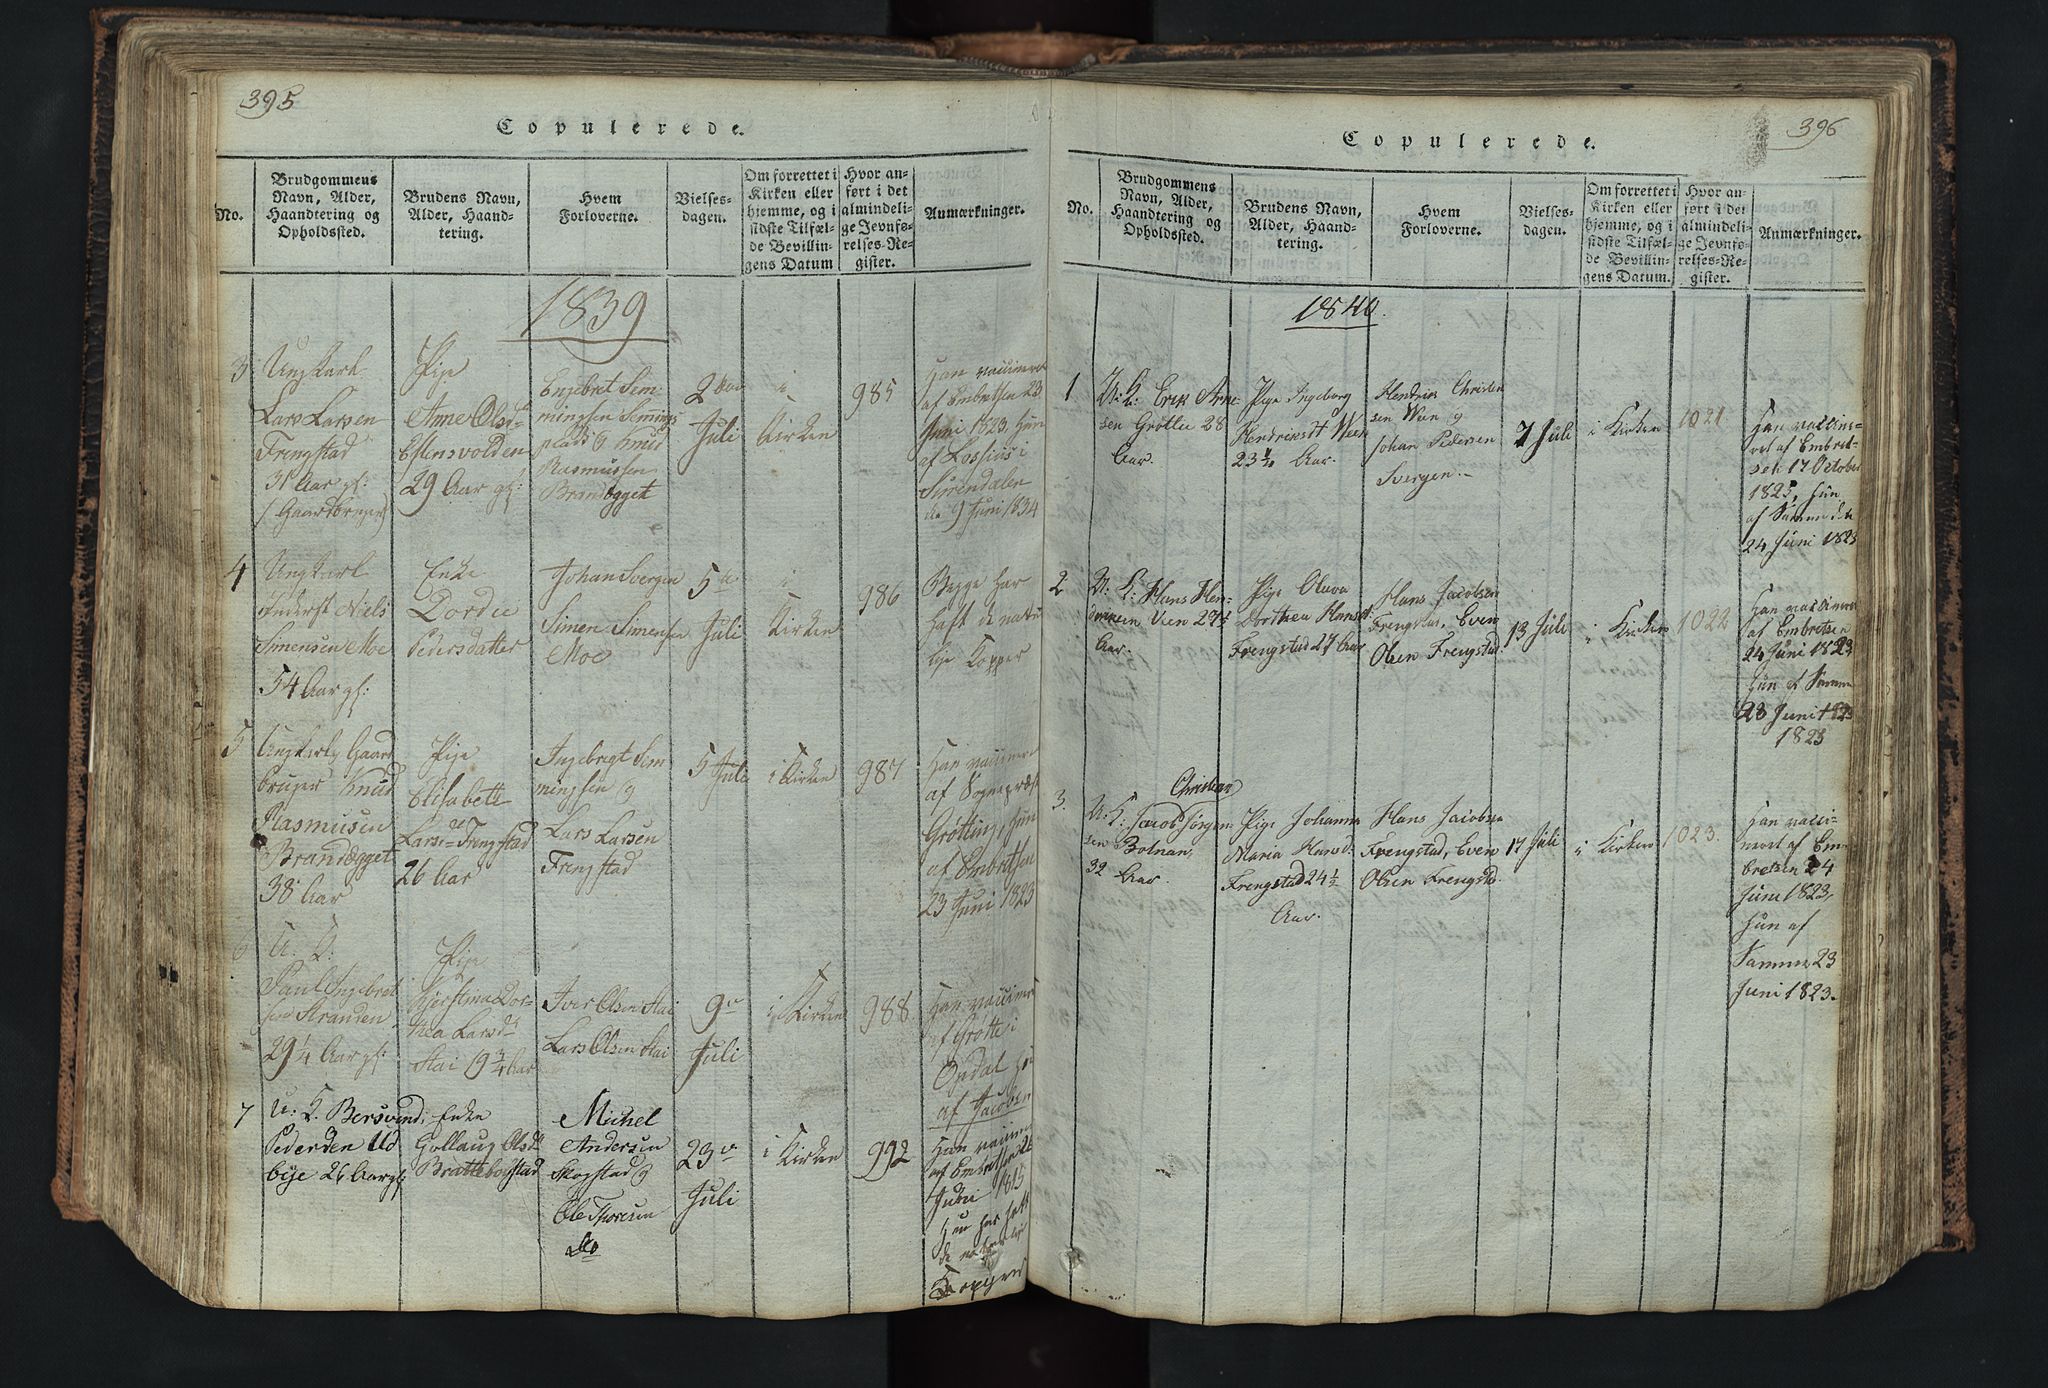 395
Copulerede.
No.
Brudgommens
Navn, Alder,
Haandtering og
Opholdssted.
Brudens Navn,
Alder, Haand-
tering.
Hvem
Forloverne.
Vielses-
dagen.
Om forrettet i
Kirken eller
hjemme, og i
sidste Tilfæl-
de Bevillin-
gens Datum
Hvor an-
ført i det
almindeli-
ge Jevnfø-
relses-Re-
gister.
Anmærkninger.
1839
3
Ungkarl
Lars Larsen
Frengstad
31 Aar gl:
(Gaardbruger)
Pige
Anne Olsd
Eflensvolden
29 Aar gl:
Engebret Sem-
mingsen
plads og Knud
Rasmussen
Brandegget
2den
Juli
i
Kirken
985
Han vaccineret
af Embretsen 23
Juni 1823 Hun
af Lossius i
Surendalen
den 9 Juni 1834
4
Ungkarl
Inderst Niels
Simensen Moe
54 Aar gl:
Enke
Dordie
Pedersdatter
Johan Svergen
Simen Simensen
Moe
5te
Juli
i
Kirken
986
Begge har
haft de natur
lige Kopper
5
Ungkarl Gaard
bruger Knud
Rasmusen
Brandegget
38 Aar
Pige
Elisabeth
Larsde Frengstad
26 Aar
Ingebrigt Sem
mingsen og
Lars Larsen
Frengstad
5 Juli
i Kirken
987
Han vaccineret
af Sognepræst
Grøtting, Hun
af Embretsen
23 Juni 1823
6
U. K.
Paul Ingebret
sen Stranden
29 1/4 Aar gl:
Pige
Kjerstina Dor-
thea Larsdr
Stai 19 3/4 Aar
Iver Olsen Stai
Lars Olsen Stai
9de
Juli
i Kirken
988
Han vaccineret
af Grøtte i
Opdal Hun
af Jacobsen
7
U: K. Bersvend
Pedersen Ud
bye 26 Aar gl:
Enke
Gollaug Olsd
Brattebogstad
Michel
Andersen
Skogstad og
Ole Thoresen
do
23de
Juli
i Kirken
992
Han vaccineret
af Embretsen 26
Juni 1815
Hun har haft
de naturlige
Kopper
396
Copulerede.
No.
Brudgommens
Navn, Alder,
Haandtering og
Opholdssted.
Brudens Navn,
Alder, Haand-
tering.
Hvem
Forloverne.
Vielses-
dagen.
Om forrettet i
Kirken eller
hjemme, og i
sidste Tilfæl-
de Bevillin-
gens Datum.
Hvor an-
ført i det
almindeli-
ge Jevnfø-
relses-Re-
gister.
Anmærkninger.
1840.
1
U: K: Erik Arne-
sen Grøtlie 28
Aar.
Pige Ingeborg
Hendriksdt Wien
23 Aar.
Hendrik Christen
sen Wien og
Johan Pedersen
Svergen.
7 Juli
i Kirken
1021
Han vaccine-
ret af Embret-
sen 17 October
1825, Hun
af Samme den
24 Juni 1823
2
U: K: Hans Hen-
driksen Vien 27 1/2
Aar.
Pige Oluva
Dorthea Hansd:
Frengstad 27 Aar
Hans Jacobsen
Frengstad, Even
Olsen Frengstad.
13 Juli
i Kirken
1022
Han vaccineret
af Embretsen
24 Juni 1823
Hun af Samme
28 Juni 1823
1823
3.
Christian
U: K: Jacob Jørgen
sen Bolman,
32 Aar.
Pige Johanna
Maria Hansd:
Frengstad 24 1/2
Aar.
Hans Jacobsen
Frengstad, Even
Olsen Frengstd.
17 Juli
i Kirken
1023.
Han vacci-
neret af Em-
bretsen 24
Juni 1823,
Hun af
Samme 23
Juni 1823.